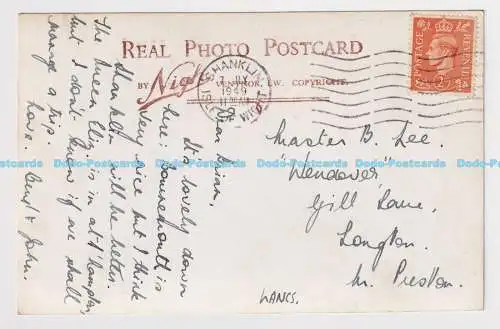 REAL PHOTO POSTCARD
BY Nigh VENTNOR, I.W. COPYRIGHT.
SHANKLIN
7 JLY
1949
ISLE OF WIGHT
POSTAGE REVENUE
2D
Dear Brian,
It's lovely down
here: Bournemouth is
very nice but I think
Shanklin will be better.
The Queen Eliz. is in at S'hampton,
but I don't know if we shall
manage a trip.
Love. Beryl + John.
Master B. Lee.
"Wendover"
Gill Lane,
Longton.
Nr. Preston.
LANCS.
Dodo-Postcards Dodo-Postcards Dodo-Postcards Dodo-Postcards Dodo-Postcards